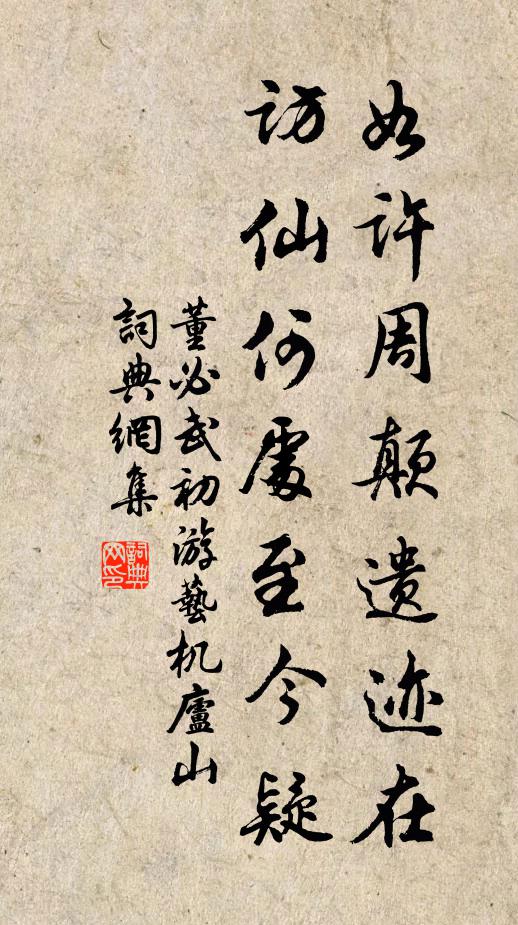 如许周颠遗迹在
访仙何處至今疑
董必武初游藝机廬山
詞典網集
詞典网印